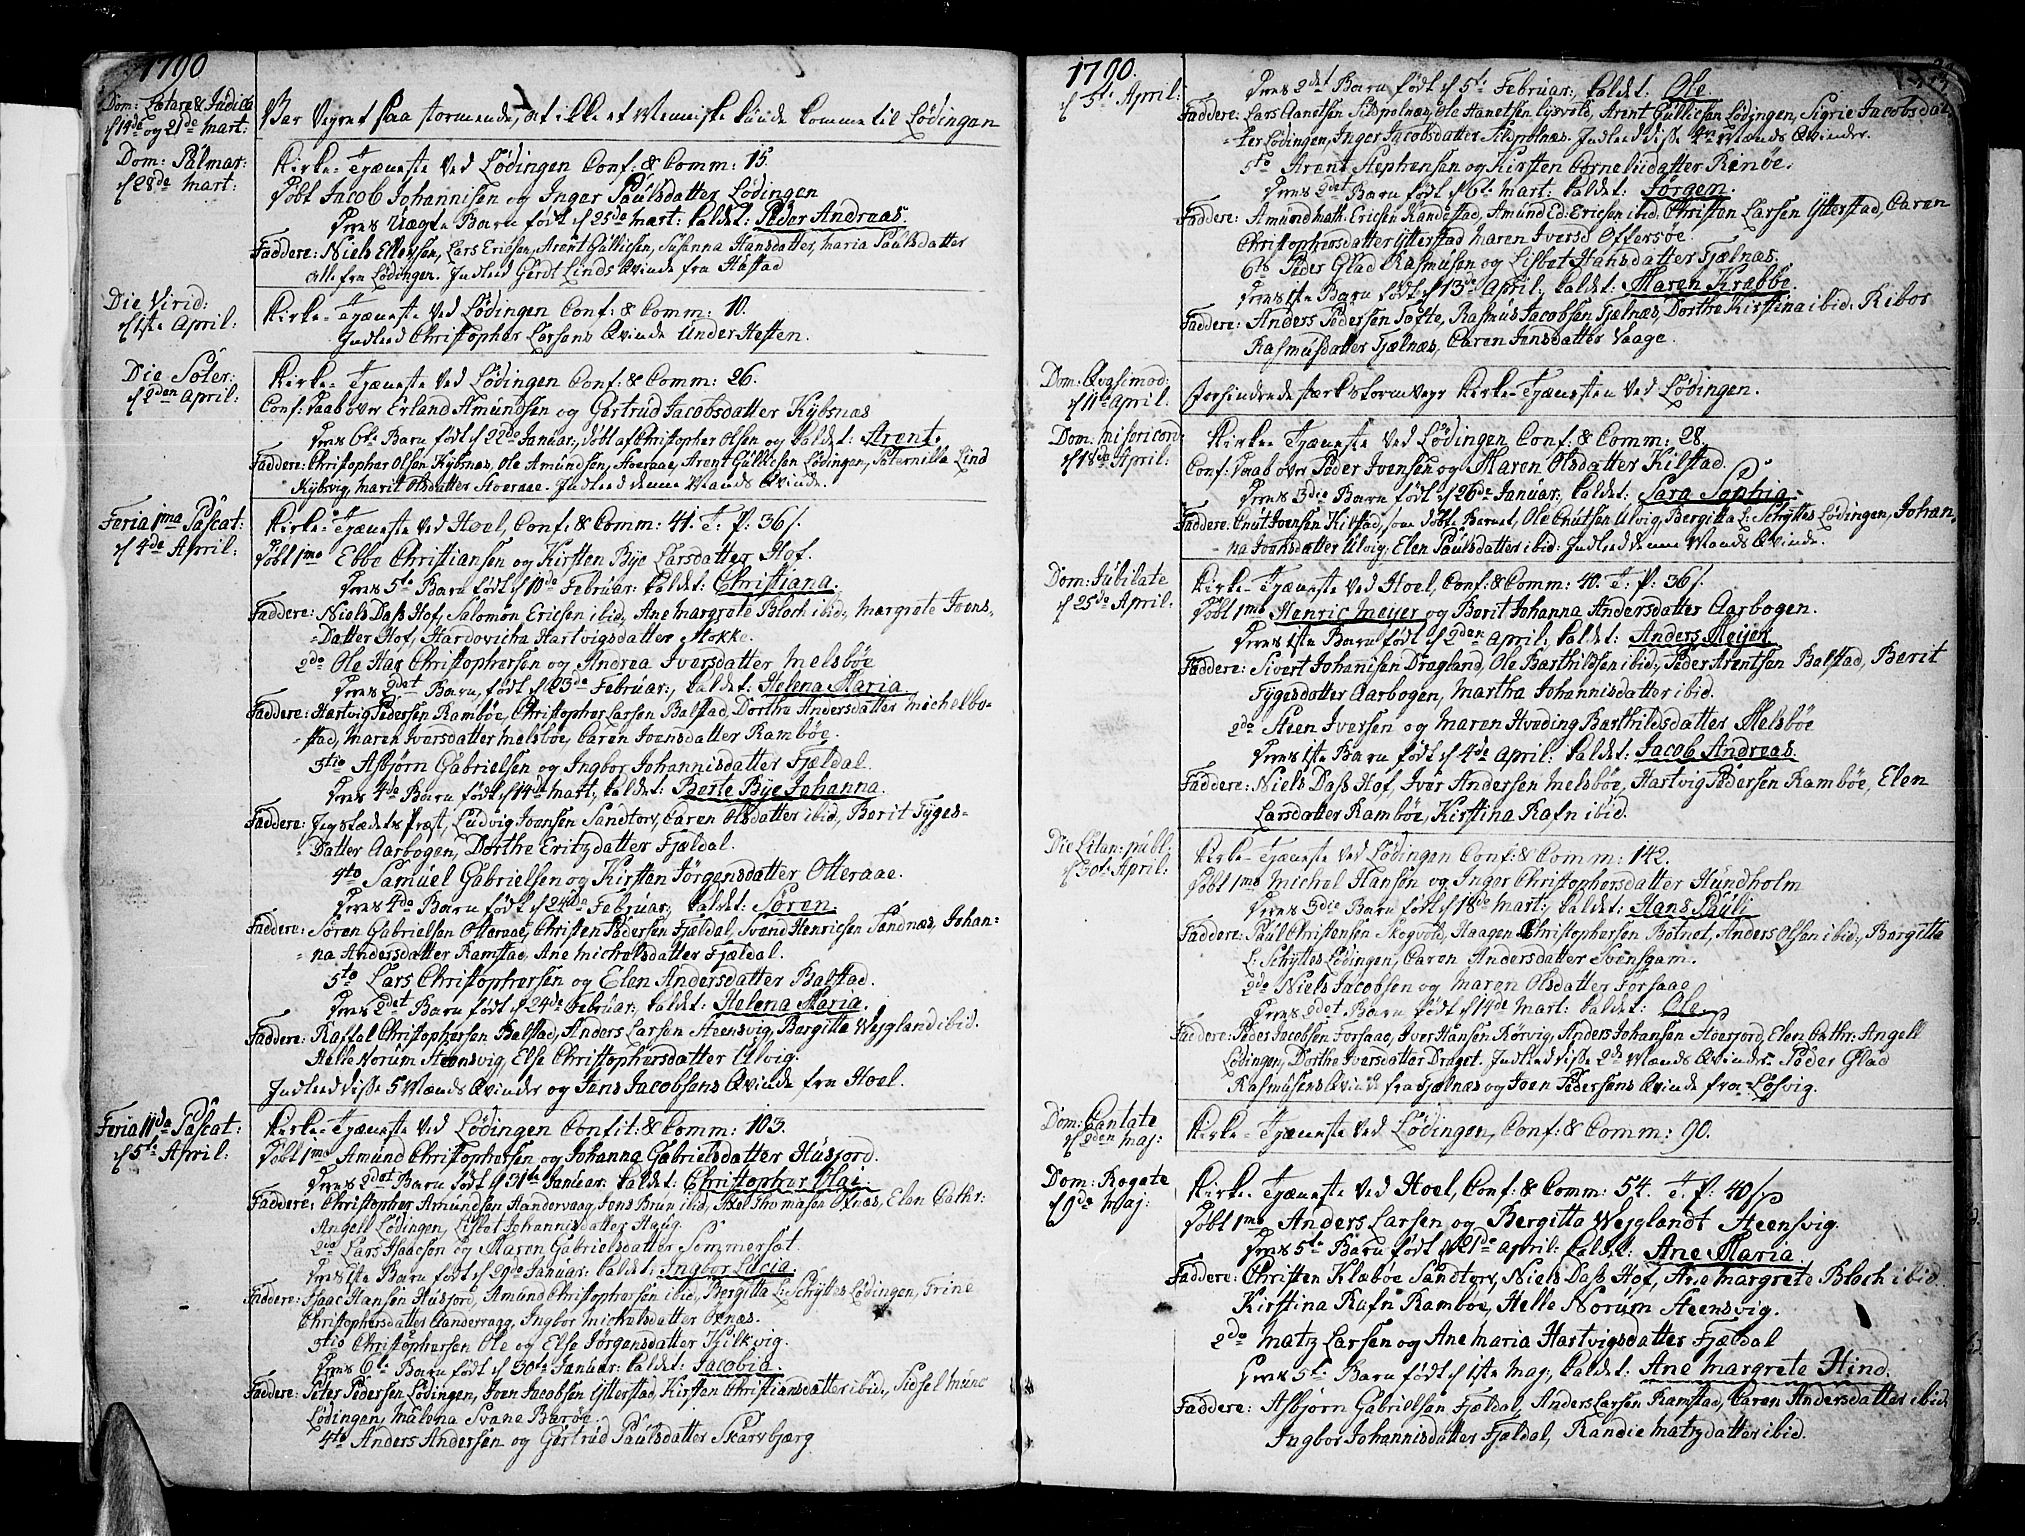 1790
Dom: Lætare & Judica
d 14de og 21de Mart:
Var Veyret saa stormende, at ikke et Menniske kunde komme til Lødingen
Dom: Palmar:
d 28de Mart:
Kirke-Tjæneste ved Lødingen Conf: & Comm: 15.
Døbt Jacob Johannisen og Inger Paulsdatter Lødingen
Deres Uægte Barn født d 25de Mart: kaldet: Peder Andreas.
Faddere: Niels Ellevsen, Lars Ericsen, Arent Gullicsen, Susanna Hansdatter, Maria Paulsdatter
alle fra Lødingen. Indleed Gerdt Linds Qvinde fra Husstad
Die Virid:
d 1ste April:
Kirke-Tjæneste ved Lødingen Conf: & Comm: 10.
Indleed Christopher Larsens Qvinde Under-Hesten.
Die Soter:
d 2den April:
Kirke-Tjæneste ved Lødingen Conf: & Comm: 26.
Conf: Daab over Erland Amundsen og Gertrud Jacobsdatter Kysnæs
Deres 6te Barn født d 22de Januar:, døbt af Christopher Olsen og kaldet: Arent.
Faddere: Christopher Olsen Kysnæs, Ole Amundsen, Storaae, Arent Gullicsen Lødingen, Peternilla Lind
Rybsvig, Marit Olsdatter Storaae. Indleed denne Mands Qvinde.
Feria 1ma Pascat:
d 4de April:
Kirke-Tjæneste ved Hoel, Conf: & Comm: 41. T: P: 36 s.
Døbt 1mo Ebbe Christiansen og Kirsten Bye Larsdatter Hof.
Deres 5te Barn født d 10de Februar: kaldet: Christiana.
Faddere: Niels Dass Hof, Salomon Ericsen ibid:, Ane Margrete Bloch ibid:, Margrete Joens-
-Datter Hof, Hardovicha Hartvigsdatter Stokke.
2do Ole Har Christophersen og Andrea Iversdatter Melsbøe
Deres 2det Barn, født d 23de Februar:, kaldet: Helena Maria
Faddere: Hartvig Pedersen Rambøe, Christopher Larsen Balstad, Dorthe Andersdatter Michelbo-
-stad, Maren Iversdatter Melsbøe, Caren Joensdatter Rambøe.
3tio Asbjørn Gabrielsen og Ingbor Johannisdatter Fjældal.
Deres 4de Barn født d 14de Mart:, kaldet: Berte Bye Johanna.
Faddere: Jeg stædets Præst, Ludvig Joensen Sandtorv, Caren Olsdatter ibid:, Berit Tyges-
-Datter Aarbogen, Dorthe Eritzdatter Fjældal.
4to Samuel Gabrielsen og Kirsten Jørgensdatter Otteraae.
Deres 4de Barn født d 24de Februar:, kaldet: Søren.
Faddere: Søren Gabrielsen Otteraae, Christen Pedersen Fjældal, Svend Henricsen Sandnæs, Johan-
-na Andersdatter Ramstad, Ane Michelsdatter Fjældal.
5to Lars Christophersen og Elen Andersdatter Balstad.
Deres 2det Barn født d 24de Februar:, kaldet: Helena Maria.
Faddere: Raftal Christophersen Balstad, Anders Larsen Steensvig, Bergitta Wejgland ibid.
Helle Norum Steensvig, Else Christophersdatter Ulvig.
Indleed disse 5 Mænds Qvinder og Jens Jacobsens Qvinde fra Hoel.
Feria 11da Pascat:
d 5te April:
Kirke-Tjæneste ved Lødingen Confit: & Comm: 103.
Døbt 1mo Amund Christophersen og Johanna Gabrielsdatter Husjord.
Deres 2det Barn født d 31te Januar: kaldet: Christopher Olai.
Faddere: Christopher Amundsen Sandervaag, Jens Brun ibid, Axel Thomasen Oxnæs, Elen Cathr:
Angell Lødingen, Lisbet Johannisdatter Haug.
2do Lars Isaacsen og Maren Gabrielsdatter Sommersæt.
Deres 1ste Barn født d 29de Januar: kaldet: Ingbor Lucia.
Faddere: Isaac Hansen Husjord, Amund Christophersen ibid, Bergitta L: Schyttes Lødingen, Trine
Christophersdatter Sandervaag, Ingbor Michelsdatter Oxnæs.
3tio Christophersen Ole og Else Jørgensdatter Kilkvig.
Deres 6te Barn født d 30te Januar: kaldet: Jacobia.
Faddere: Peter Pedersen Lødingen, Joen Jacobsen Ytterstad, Kirsten Christiansdatter ibid, Sidsel Munc
Lødingen, Malena Svane Barøe.
4to Anders Andersen og Gertrud Paulsdatter Skarvbjærg
1790.
d 5te April:
Deres 2det Barn født d 5te Februar: kaldet: Ole.
Faddere: Lars Arentsen Silspolnæs, Ole Hanetsen Lysvold, Arent Gullicsen Lødingen, Sigrie Jacobsdat-
-ter Lødingen, Inger Jacobsdatter Silspolnæs. Indleed disse 4re Mands Qvinder.
5to Arent Stephensen og Kirsten Corneliidatter Rinøe.
Deres 2det Barn født d 6te Mart: kaldet: Jørgen.
Faddere: Amund Math: Ericsen Randestad, Amund Ed: Ericsen ibid, Christen Larsen Ytterstad, Caren
Christophersdatter Ytterstad Maren Iversd Offersøe.
6te Peder Glad Rasmusen og Lisbet Hansdatter Fjælnæs.
Deres 1ste Barn født d 13de April:, kaldet: Maren Krabbe.
Faddere: Anders Pedersen Tofte, Rasmus Jacobsen Fjælnæs, Dorthe Kirstina ibid, Ribor
Rasmusdatter Fjælnæs, Caren Jensdatter Vaage.
Dom: Qvasimod:
d 11te April.
Forhindrede stærk Stormveyr Kirke-Tjænesten ved Lødingen.
Dom: Misericord:
d 18de April:
Kirke-Tjæneste ved Lødingen Conf: & Comm: 28.
Conf: Daab over Peder Ivensen og Maren Olsdatter Kilstad
Deres 3die Barn født d 26de Januar:, kaldet: Sara Sophia.
Faddere: Cnut Joensen Kilstad, som døbte Barnet, Ole Cnutsen Ulvig, Bergitta L: Schyttes Lødingen, Johan-
-na Joensdatter Ulvig, Elen Paulsdatter ibid: Indleed denne Mands Qvinde.
Dom: Jubilate
d 25de April:
Kirke-Tjæneste ved Hoel, Conf: & Comm: 40. T: P: 36 s.
Døbt 1mo Henric Meijer og Berit Johanna Andersdatter Aarbogen.
Deres 1ste Barn født d 2den April: kaldet: Anders Meijer
Faddere: Sivert Johansen Dragland, Ole Barthildsen ibid:, Peder Arentsen Balstad, Berit
Tygesdatter Aarbogen, Martha Johannisdatter ibid.
2do Steen Iversen og Maren Hveding Barthildsdatter Melsbøe
Deres 1ste Barn født d 4de April: kaldet: Jacob Andreas.
Faddere: Niels Dass Hof, Iver Andersen Melsbøe, Hartvig Pedersen Rambøe, Elen
Larsdatter Rambøe, Kirstina Rafn ibid.
Die Litan: publ:
d 30te April:
Kirke-Tjæneste ved Lødingen Conf: & Comm: 142.
Døbt 1mo Michel Hansen og Inger Christophersdatter Hundholm
Deres 3die Barn født d 18de Mart:, kaldet: Hans Pauli
Faddere: Paul Christensen Skogvold, Haagen Christophersen Botnet, Anders Olsen ibid:, Bergitta
L: Schyttes Lødingen, Caren Andersdatter Svensgam.
2do Niels Jacobsen og Maren Olsdatter Forsaae
Deres 2det Barn født d 14de Mart: kaldet: Ole
Faddere: Peder Jacobsen Forsaae, Iver Hansen Rørvig, Anders Johansen Stoerjord, Elen Cathr: Angell
Lødingen, Dorthe Iversdatter Draget. Indleed disse 2de Mænds Qvinder, Peder Glad
Rasmusens Qvinde fra Fjælnæs og Joen Pedersens Qvinde fra Løsvig.
Dom: Cantate
d 2den Maj:
Kirke-Tjæneste ved Lødingen, Conf: & Comm: 90.
Dom: Rogate
d 9de Maj:
Kirke-Tjæneste ved Hoel, Conf: & Comm: 54. T: P: 40 s
Døbt 1mo Anders Larsen og Bergitta Wejglandt Steensvig.
Deres 5te Barn født d 21de April: kaldet: Ane Maria
Faddere: Christen Klæbøe Sandtorv, Niels Dass Hof, Ane Margrete Bloch ibid.
Kirstina Rafn Rambøe, Helle Norum Steensvig.
2do Matz Larsen og Ane Maria Hartvigsdatter Fjældal
Deres 5te Barn født d 1ste Maj:, kaldet: Ane Margrete Hind.
Faddere: Asbjørn Gabrielsen Fjældal, Anders Larsen Ramstad, Caren Andersdatter ibid
Ingbor Johannisdatter Fjældal, Randie Matzdatter ibid.